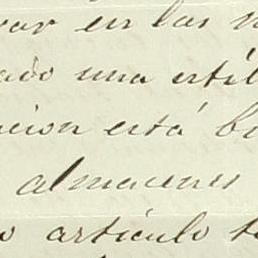 var en las
ado una
acion está
almacenes
o artículo